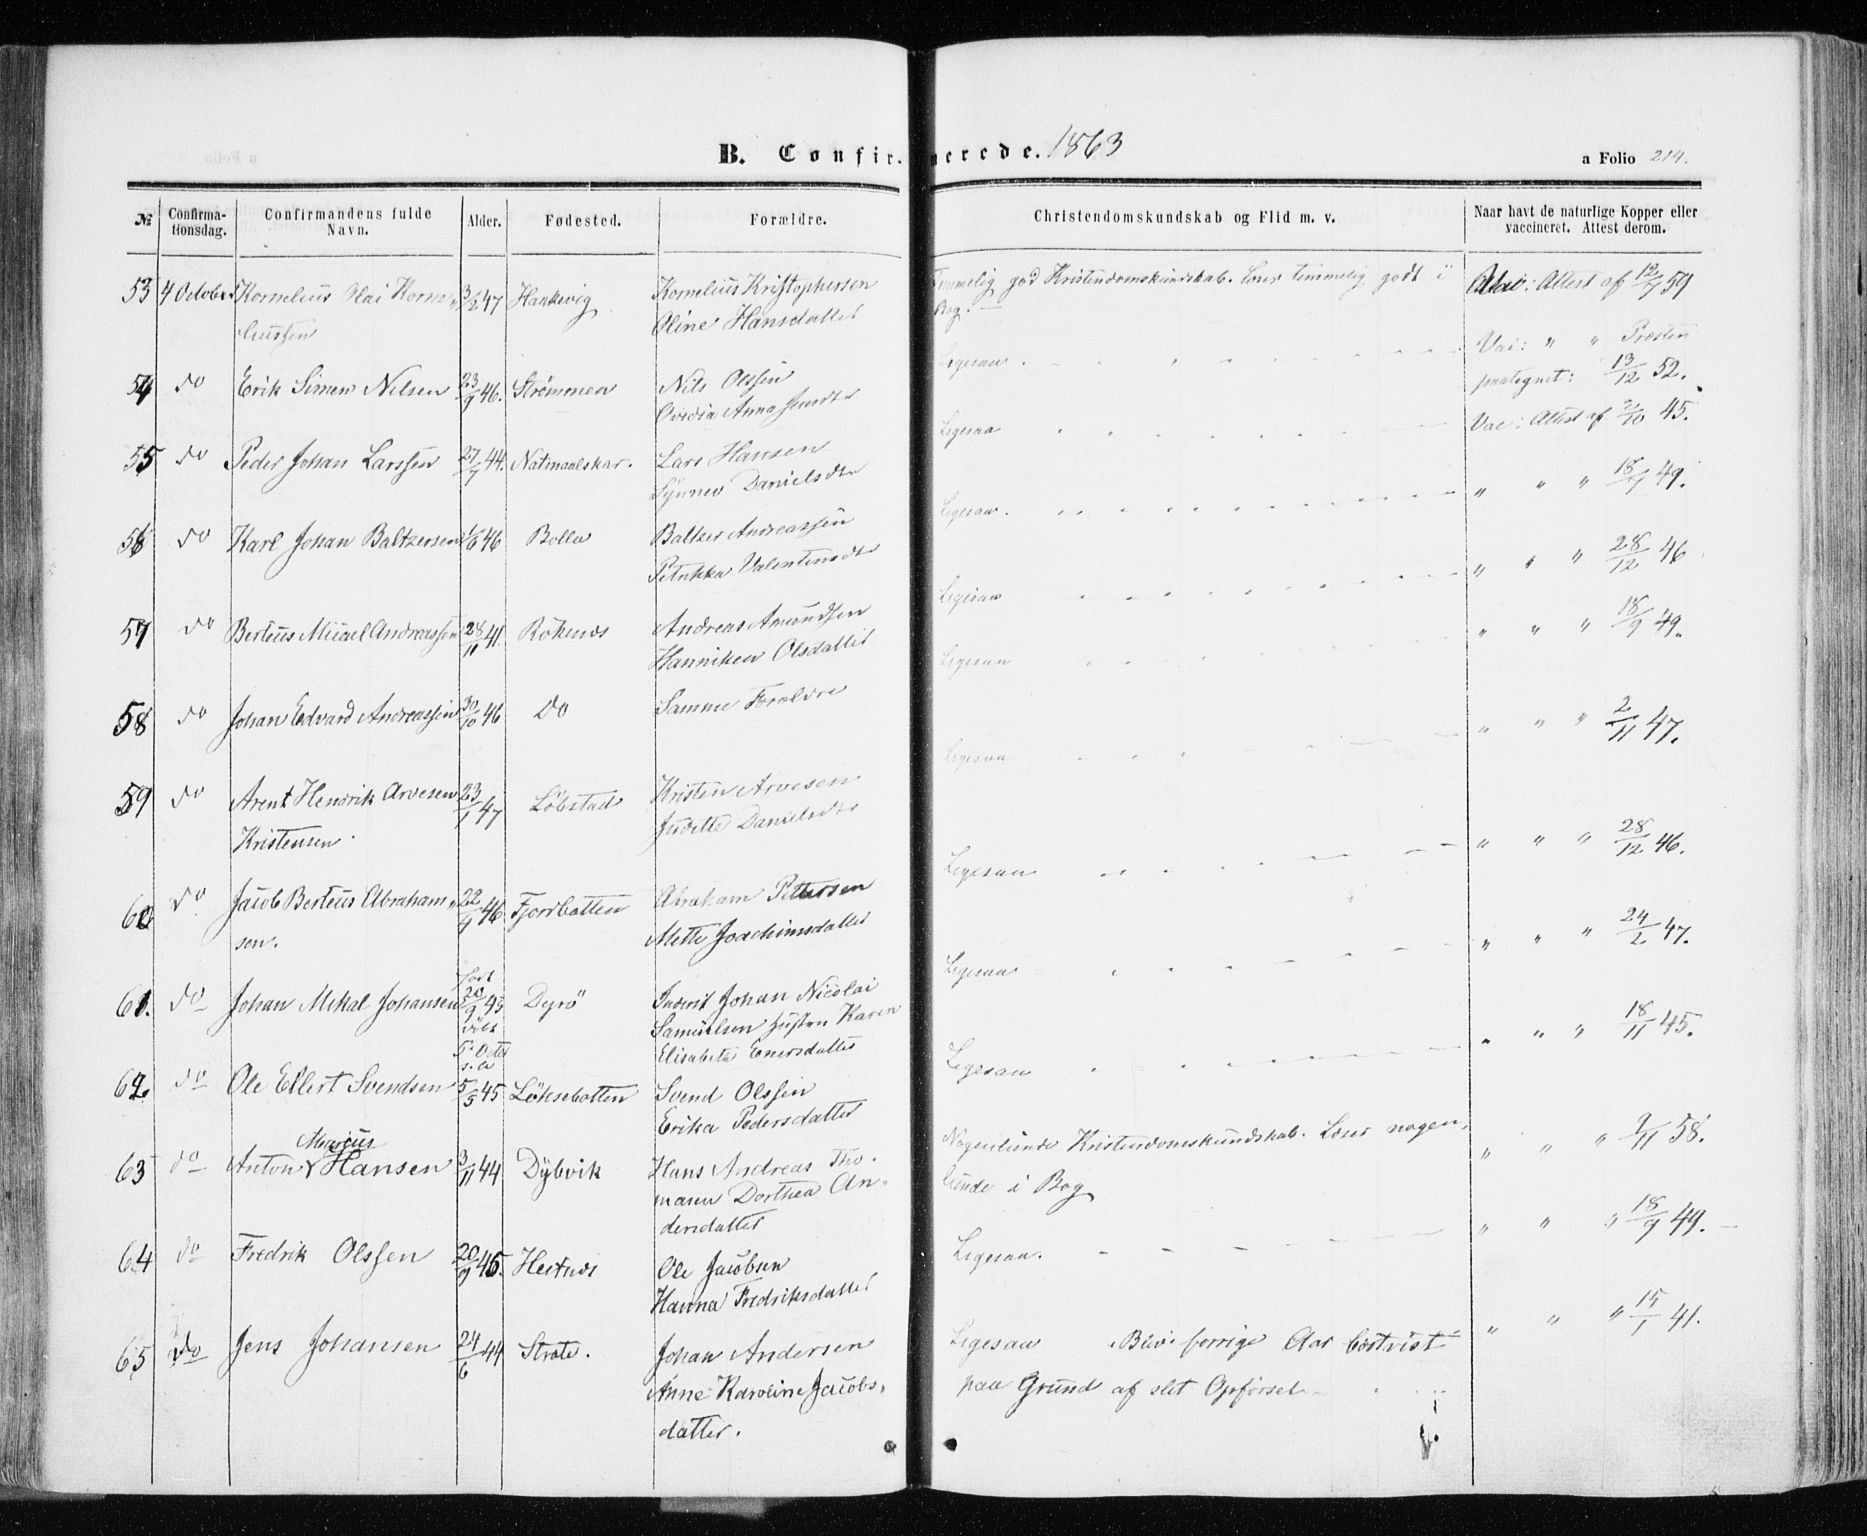 B. Confirmerede. 1863
a Folio 214.
№ Confirmationsdag. Confirmandens fulde Navn. Alder. Fødested. Forældre. Christendomskundskab og Flid m. v. Naar havt de naturlige Kopper eller vaccineret. Attest derom.
53 4 October Kornelius Olai Korne- 3/2 47 Haukevig Kornelius Kristophersen Temmelig god Kristendomskundskab. Læser temmelig godt i Vac: Attest af 12/9 59
liussen Oline Hansdatter Bog. —
54 do Erik Simon Nilsen 23/9 46. Strømmen Nils Olssen Ligesaa. Vac: " " Præsten
Ovidia Anna Jensdtr paategnet: 13/12 52.
55 do Peder Johan Larssen 27/7 44. Natmaalskar. Lars Hansen Ligesaa Vac: Attest af 2/10 45.
Synnev Danielsdtr
56 do Karl Johan Baltzersen 1/6 46 Bolla Baltzer Andreassen Ligesaa. " " " 18/9 49.
Petrikka Valentinsdtr
57 do Berteus Micael Andreassen 28/11 41. Rökenes Andreas Amundsen Ligesaa " " " 28/12 46
Hanniken Olsdatter
58 do Johan Edvard Andreassen 30/10 46 Do Samme Forældre Ligesaa " " " 18/9 49.
59 do Arent Hendrik Arvesen 23/1 47 Löbstad Kristen Arvesen Ligesaa " " " 2/11 47.
Kristensen. Judette Danielsdtr
60 do Jacob Berteus Abraham- 22/9 46. Fjordbotten Abraham Pettersen Ligesaa " " " 28/12 46.
sen. Mette Joachimsdatter
61. do Johan Mikal Johansen født 20/9 45 døbt 5 Octbr s. A. Dyrö Inderst Johan Nicolai Ligesaa " " " 24/2 47.
Samuelsen Hustru Karen
Elisabeta Enersdatter
62. do Ole Ellert Svendsen 5/5 45 Löksebotten Svend Olssen Ligesaa " " " 18/11 45.
Erika Pedersdatter
63 do Anton Marius Hansen 3/11 44 Dybvik Hans Andreas Tho- Nogenlunde Kristendomskundskab. Læser nogen- " " " 2/11 58.
mann Dorthea An- lunde i Bog
dersdatter
64 do Fredrik Olssen 20/9 45. Hestnes Ole Jacobsen Ligesaa. " " " 18/9 49.
Hanna Fredriksdatter
65 do Jens Johansen 24/6 44 Strate. Johan Andersen Ligesaa Blev forrige Aar bortvist " " " 15/1 41.
Anne Karoline Jacobs- paa Grund af slet Opførsel
datter.